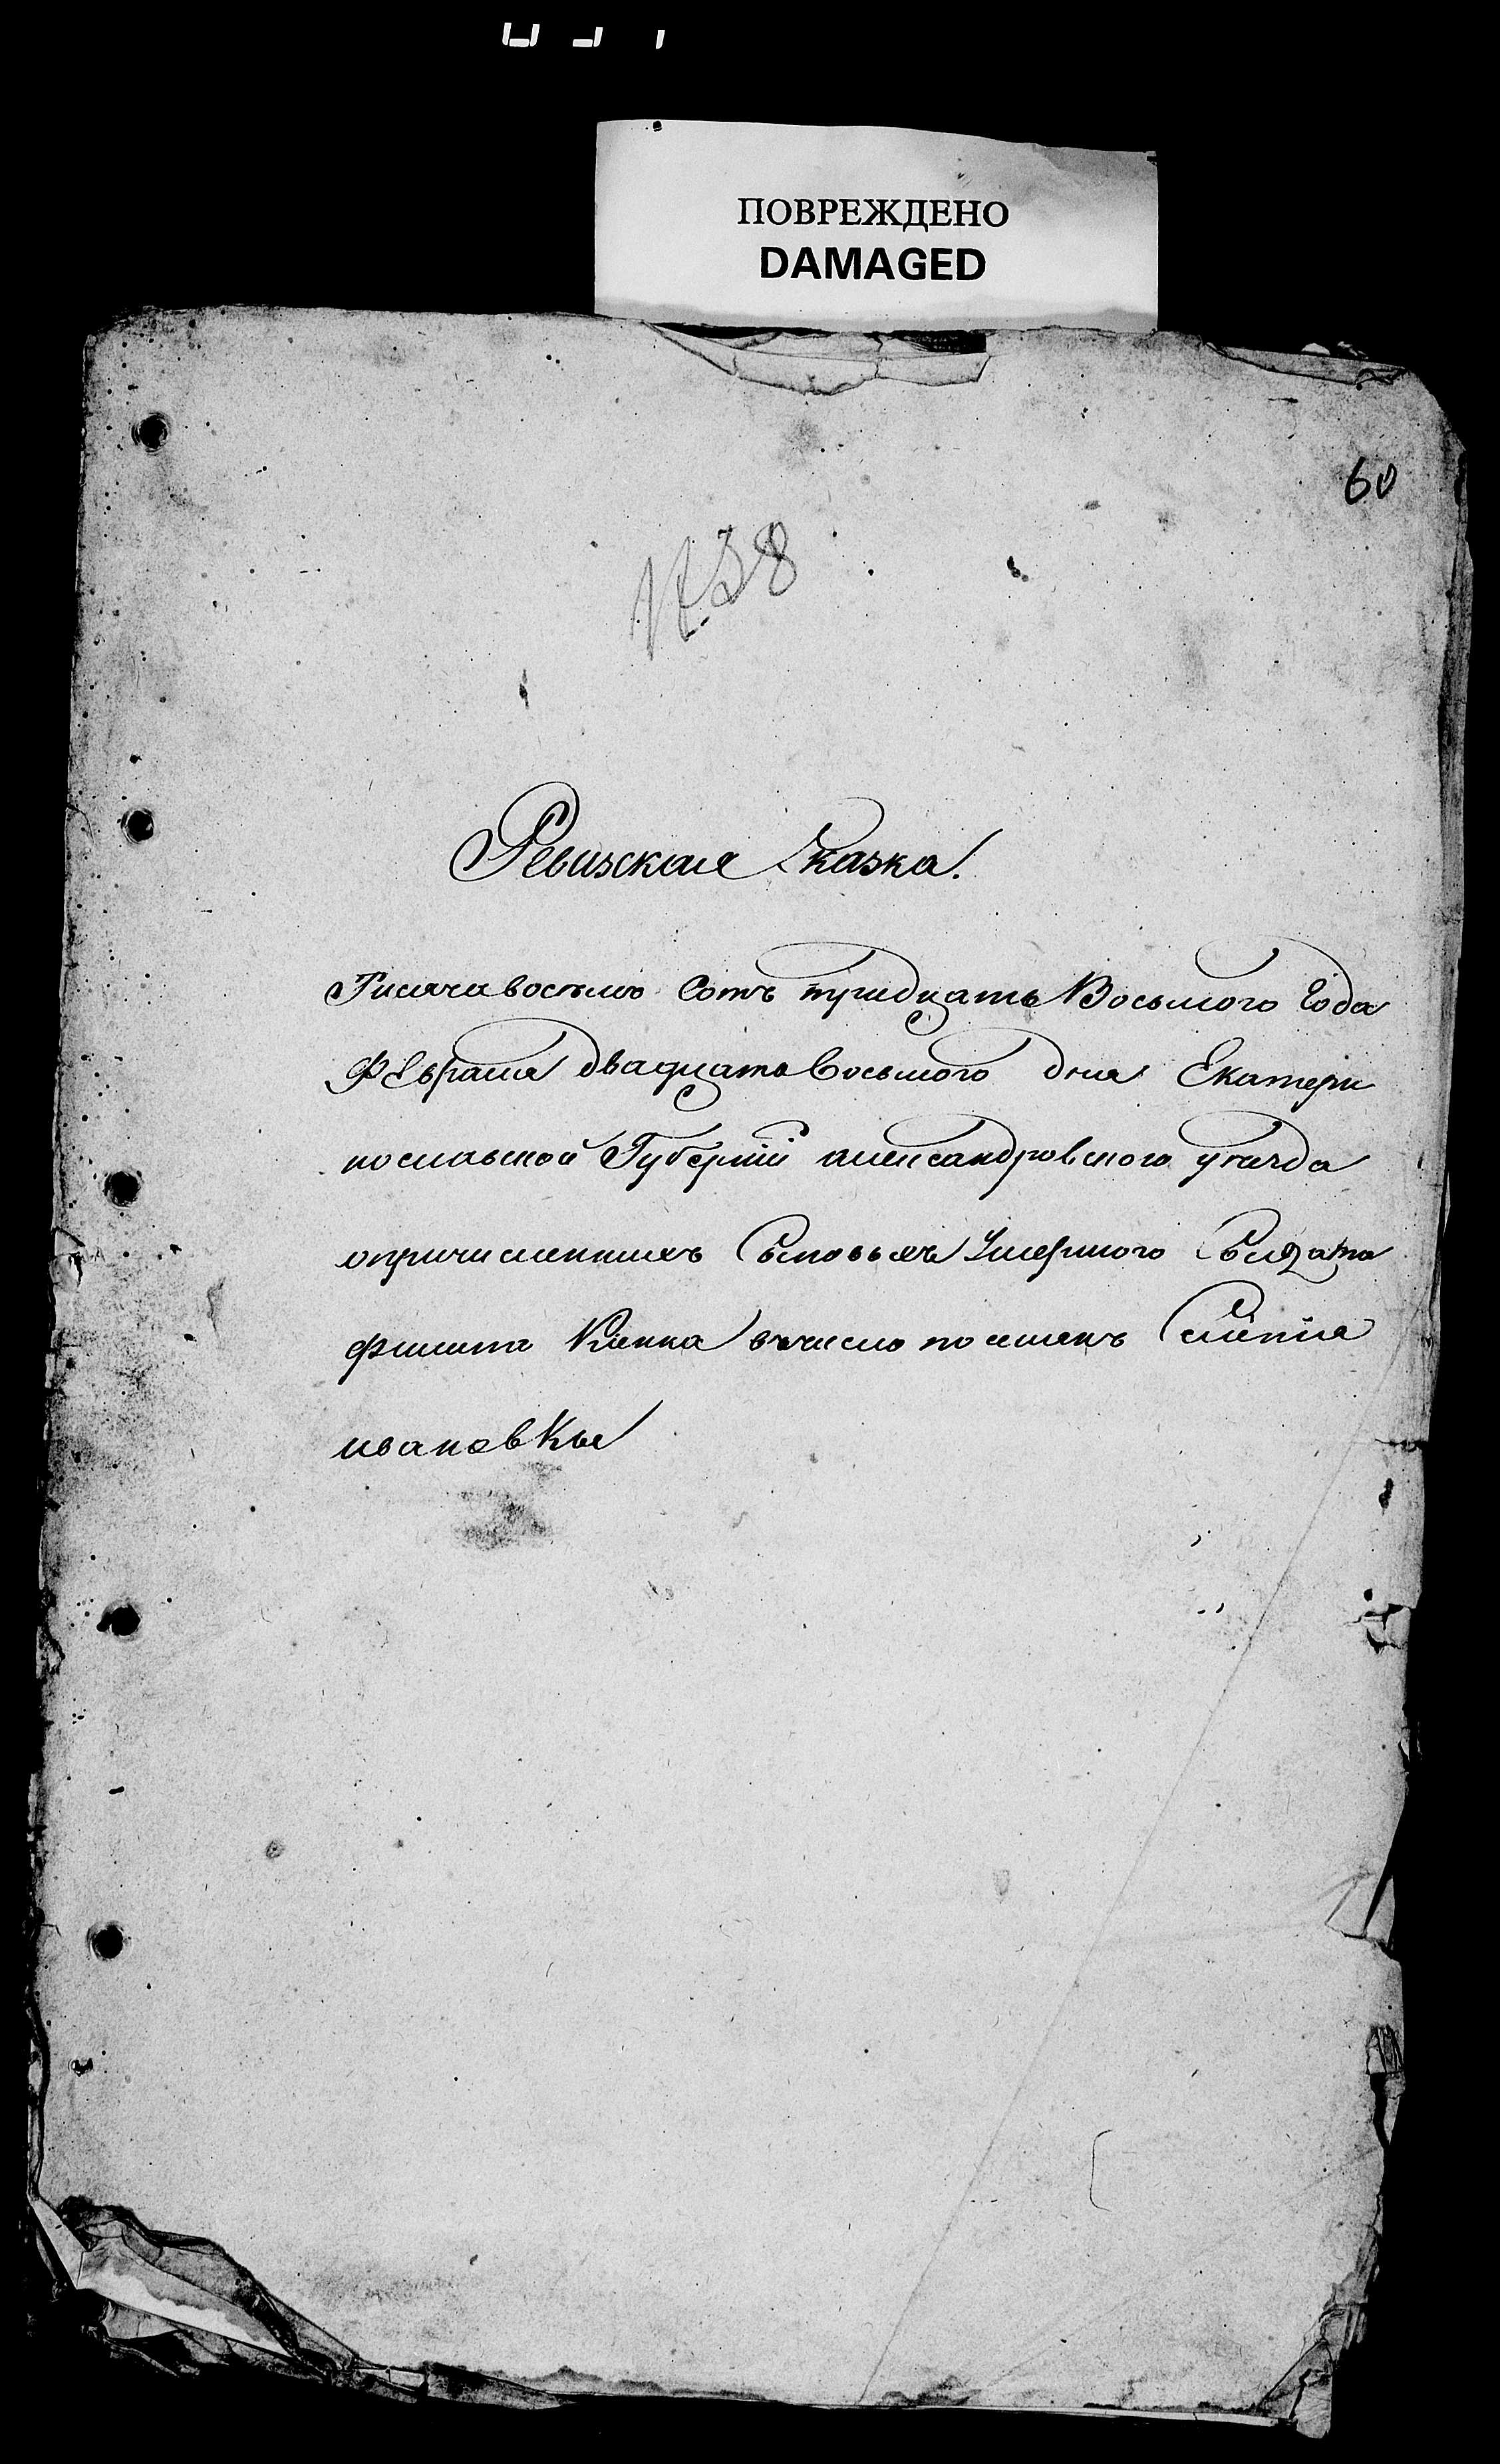 ПОВРЕЖДЕНО
DAMAGED
60
№38
Ревизская Сказка.
Тисяча восьмъ Сотъ тридцать Восьмого Года
Февраля двадцать Восьмого дня Екатери
нославской Губернии александровского уезда
опричисленныхъ Сыновьяхъ Умершого Солдата
филипа Кіяшка вчисло поселянъ Селения
ивановкы